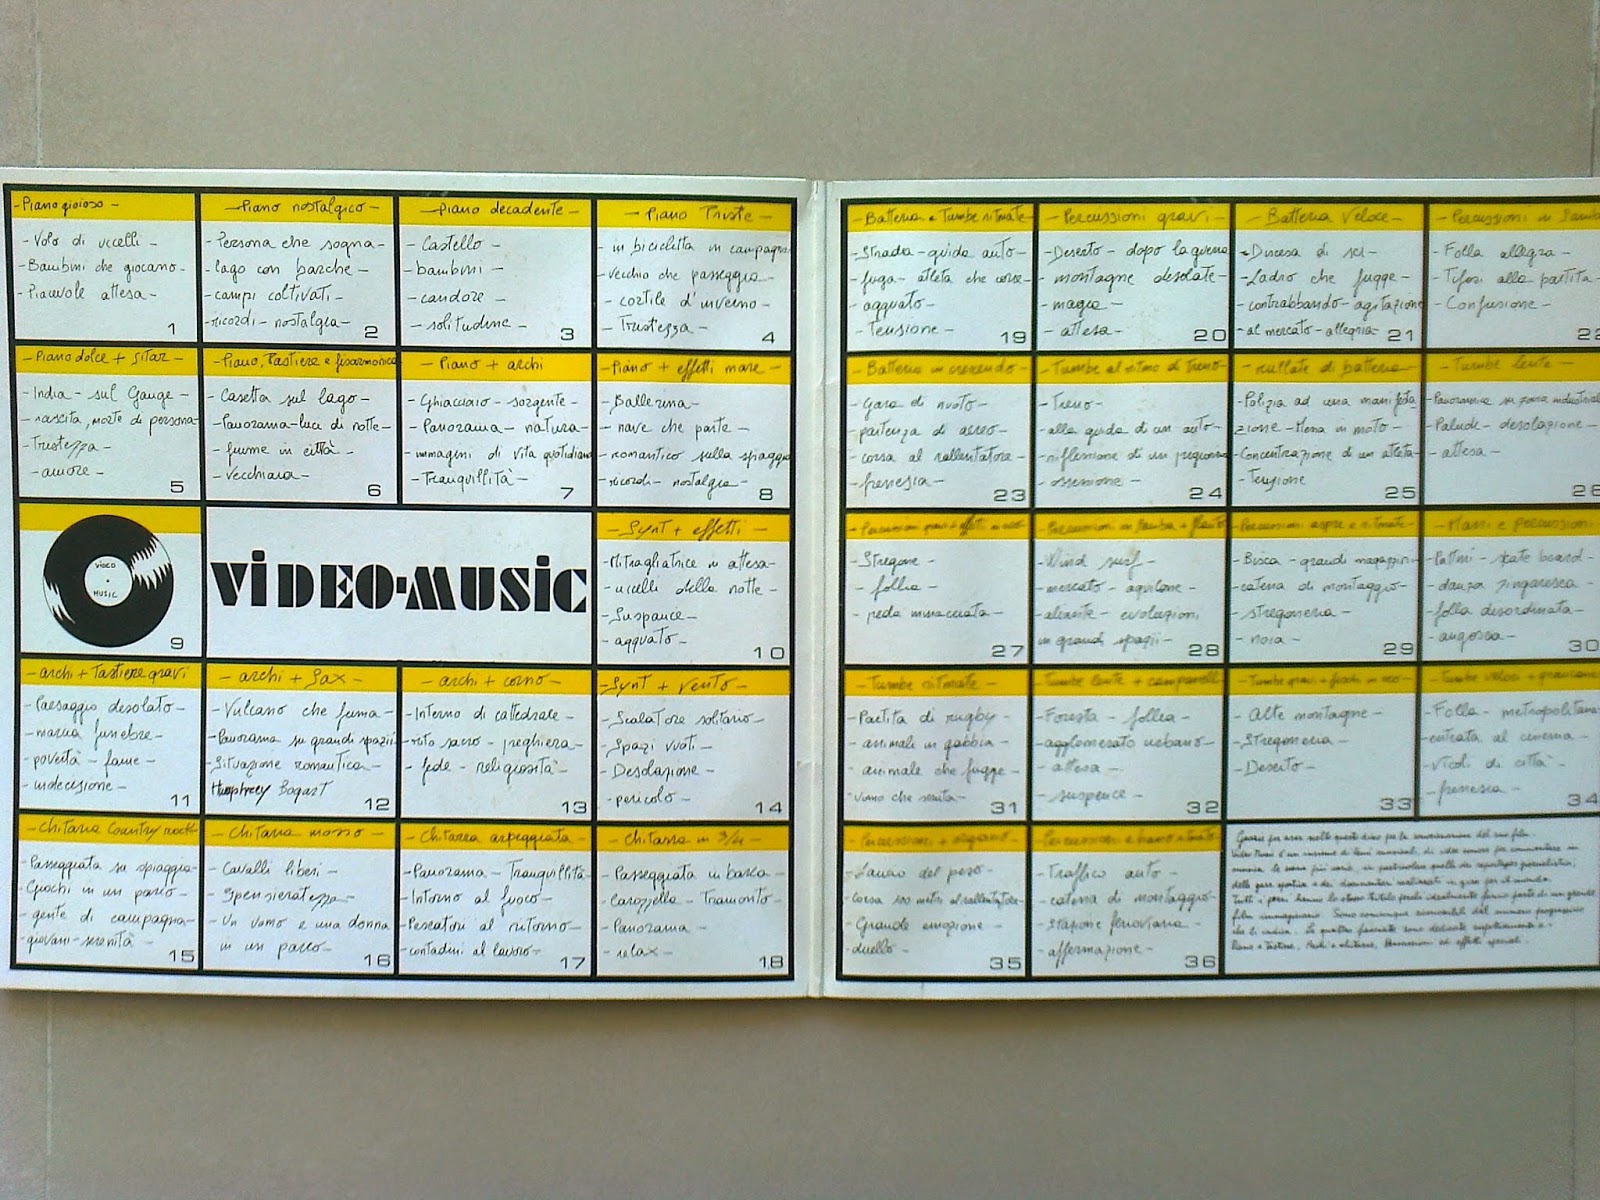 - Piano gioioso -
- Volo di uccelli -
- Bambini che giocano -
- Piacevole attesa -
1
- Piano nostalgico -
- Persona che sogna -
- lago con barche -
- campi coltivati -
- ricordi - nostalgia -
2
- Piano decadente -
- Castello -
- bambini -
- candore -
- solitudine -
3
- Piano Triste -
- in bicicletta in campagna
- vecchio che passeggia -
- cortile d'inverno -
- Tristezza -
4
- Piano dolce + sitar -
- India - sul Gange -
- nascita, morte di persona -
- Tristezza -
- amore -
5
- Piano, Tastiere e fisarmonica
- Casetta sul lago -
- Panorama - luci di notte -
- fiume in città -
- vecchiaia -
6
- Piano + archi
- Ghiacciaio - sorgente -
- Panorama - natura -
- immagini di vita quotidiana
- Tranquillità -
7
- Piano + effetti mare -
- Ballerina -
- nave che parte -
- romantico sulla spiaggia
- ricordi - nostalgia -
8
VIDEO
MUSIC
9
VIDEO-MUSIC
- Synt + effetti -
- Mitragliatrice in attesa -
- uccelli della notte -
- Suspance -
- agguato -
10
- archi + Tastiere gravi
- Paesaggio desolato -
- marcia funebre -
- povertà - fame -
- indecisione -
11
- archi + Sax -
- Vulcano che fuma -
- Panorama su grandi spazi -
- Situazione romantica -
Humphrey Bogart
12
- archi + corno -
- Interno di cattedrale -
- rito sacro - preghiera -
- fede - religiosità -
13
- Synt + vento -
- Scalatore solitario -
- Spazi vuoti -
- Desolazione -
- pericolo -
14
- Chitarra Country rock -
- Passeggiata su spiaggia -
- Giochi in un parco -
- gente di campagna -
- giovani - serenità -
15
- Chitarra mosso -
- Cavalli liberi -
- Spensieratezza -
- Un uomo e una donna
in un parco -
16
- Chitarra arpeggiata -
- Panorama - Tranquillità -
- Intorno al fuoco -
- Pescatori al ritorno -
- contadini al lavoro -
17
- Chitarra in 3/4 -
- Passeggiata in barca
- Carozzella - Tramonto -
- Panorama -
- relax -
18
- Batteria e Tumbe ritmate
- Strada - guida auto -
- fuga - atleta che corre -
- agguato -
- Tensione -
19
- Percussioni gravi -
- Deserto - dopo la guerra
- montagne desolate -
- magia -
- attesa -
20
- Batteria Veloce -
- Discesa di sci -
- Ladro che fugge -
- contrabbando - agitazione
- al mercato - allegria -
21
- Percussioni in Samba
- Folla allegra -
- Tifosi alla partita -
- Confusione -
22
- Batteria in crescendo -
- Gara di nuoto -
- partenza di aereo -
- corsa al rallentatore -
- frenesia -
23
- Tumbe al ritmo di Treno -
- Treno -
- alla guida di un auto -
- riflessione di un
- ossessione -
24
- rullate di batteria -
- Polizia ad una manifesta
zione - in moto -
- Concentrazione di un atleta -
- Tensione
25
- Tumbe lente -
- Panoramica su zona industriale
- Palude - desolazione -
- attesa -
26
- Percussioni
- Stregone -
- follia -
- preda minacciata -
27
- Percussioni in Samba + flauto
- Wind surf -
- mercato - aquilone -
- aliante - evoluzioni
in grandi spazi -
28
- Percussioni aspre e ritmate -
- Bisca - grandi magazzini
- catena di montaggio -
- stregoneria -
- noia -
29
- Mani e percussioni
- Pattini - skate board -
- danza zingaresca -
- folla disordinata -
- angoscia -
30
- Tumbe ritmate -
- Partita di rugby -
- animali in gabbia -
- animale che fugge -
- uomo che
31
- Tumbe lente + campanelli
- Foresta - follia -
- agglomerato urbano -
- attesa -
- suspence -
32
- Tumbe gravi +
- Alte montagne -
- Stregoneria -
- Deserto -
33
- Tumbe veloci +
- Folla - metropolitana
- entrata al cinema -
- vicoli di città -
- frenesia -
34
- Percussioni + organo -
- Lancio del peso -
- corsa 100 metri al rallentatore -
- Grande emozione -
- duello -
35
- Percussioni e basso ritmato
- Traffico auto -
- catena di montaggio -
- Stazione ferroviaria -
- affermazione -
36
Grazie per aver scelto questo disco per la sonorizzazione del suo film.
Video Music è un insieme di temi musicali, di idee sonore per commentare in
delle gare sportive e dei documentari realizzati in giro per il mondo.
Tutti i pezzi hanno lo stesso titolo perché idealmente fanno parte di un grande
film immaginario. Sono comunque riconoscibili dal numero progressivo
che li indica. Le quattro facciate sono dedicate rispettivamente a:
Piano e Tastiere, Archi e chitarre, Percussioni ed effetti speciali.